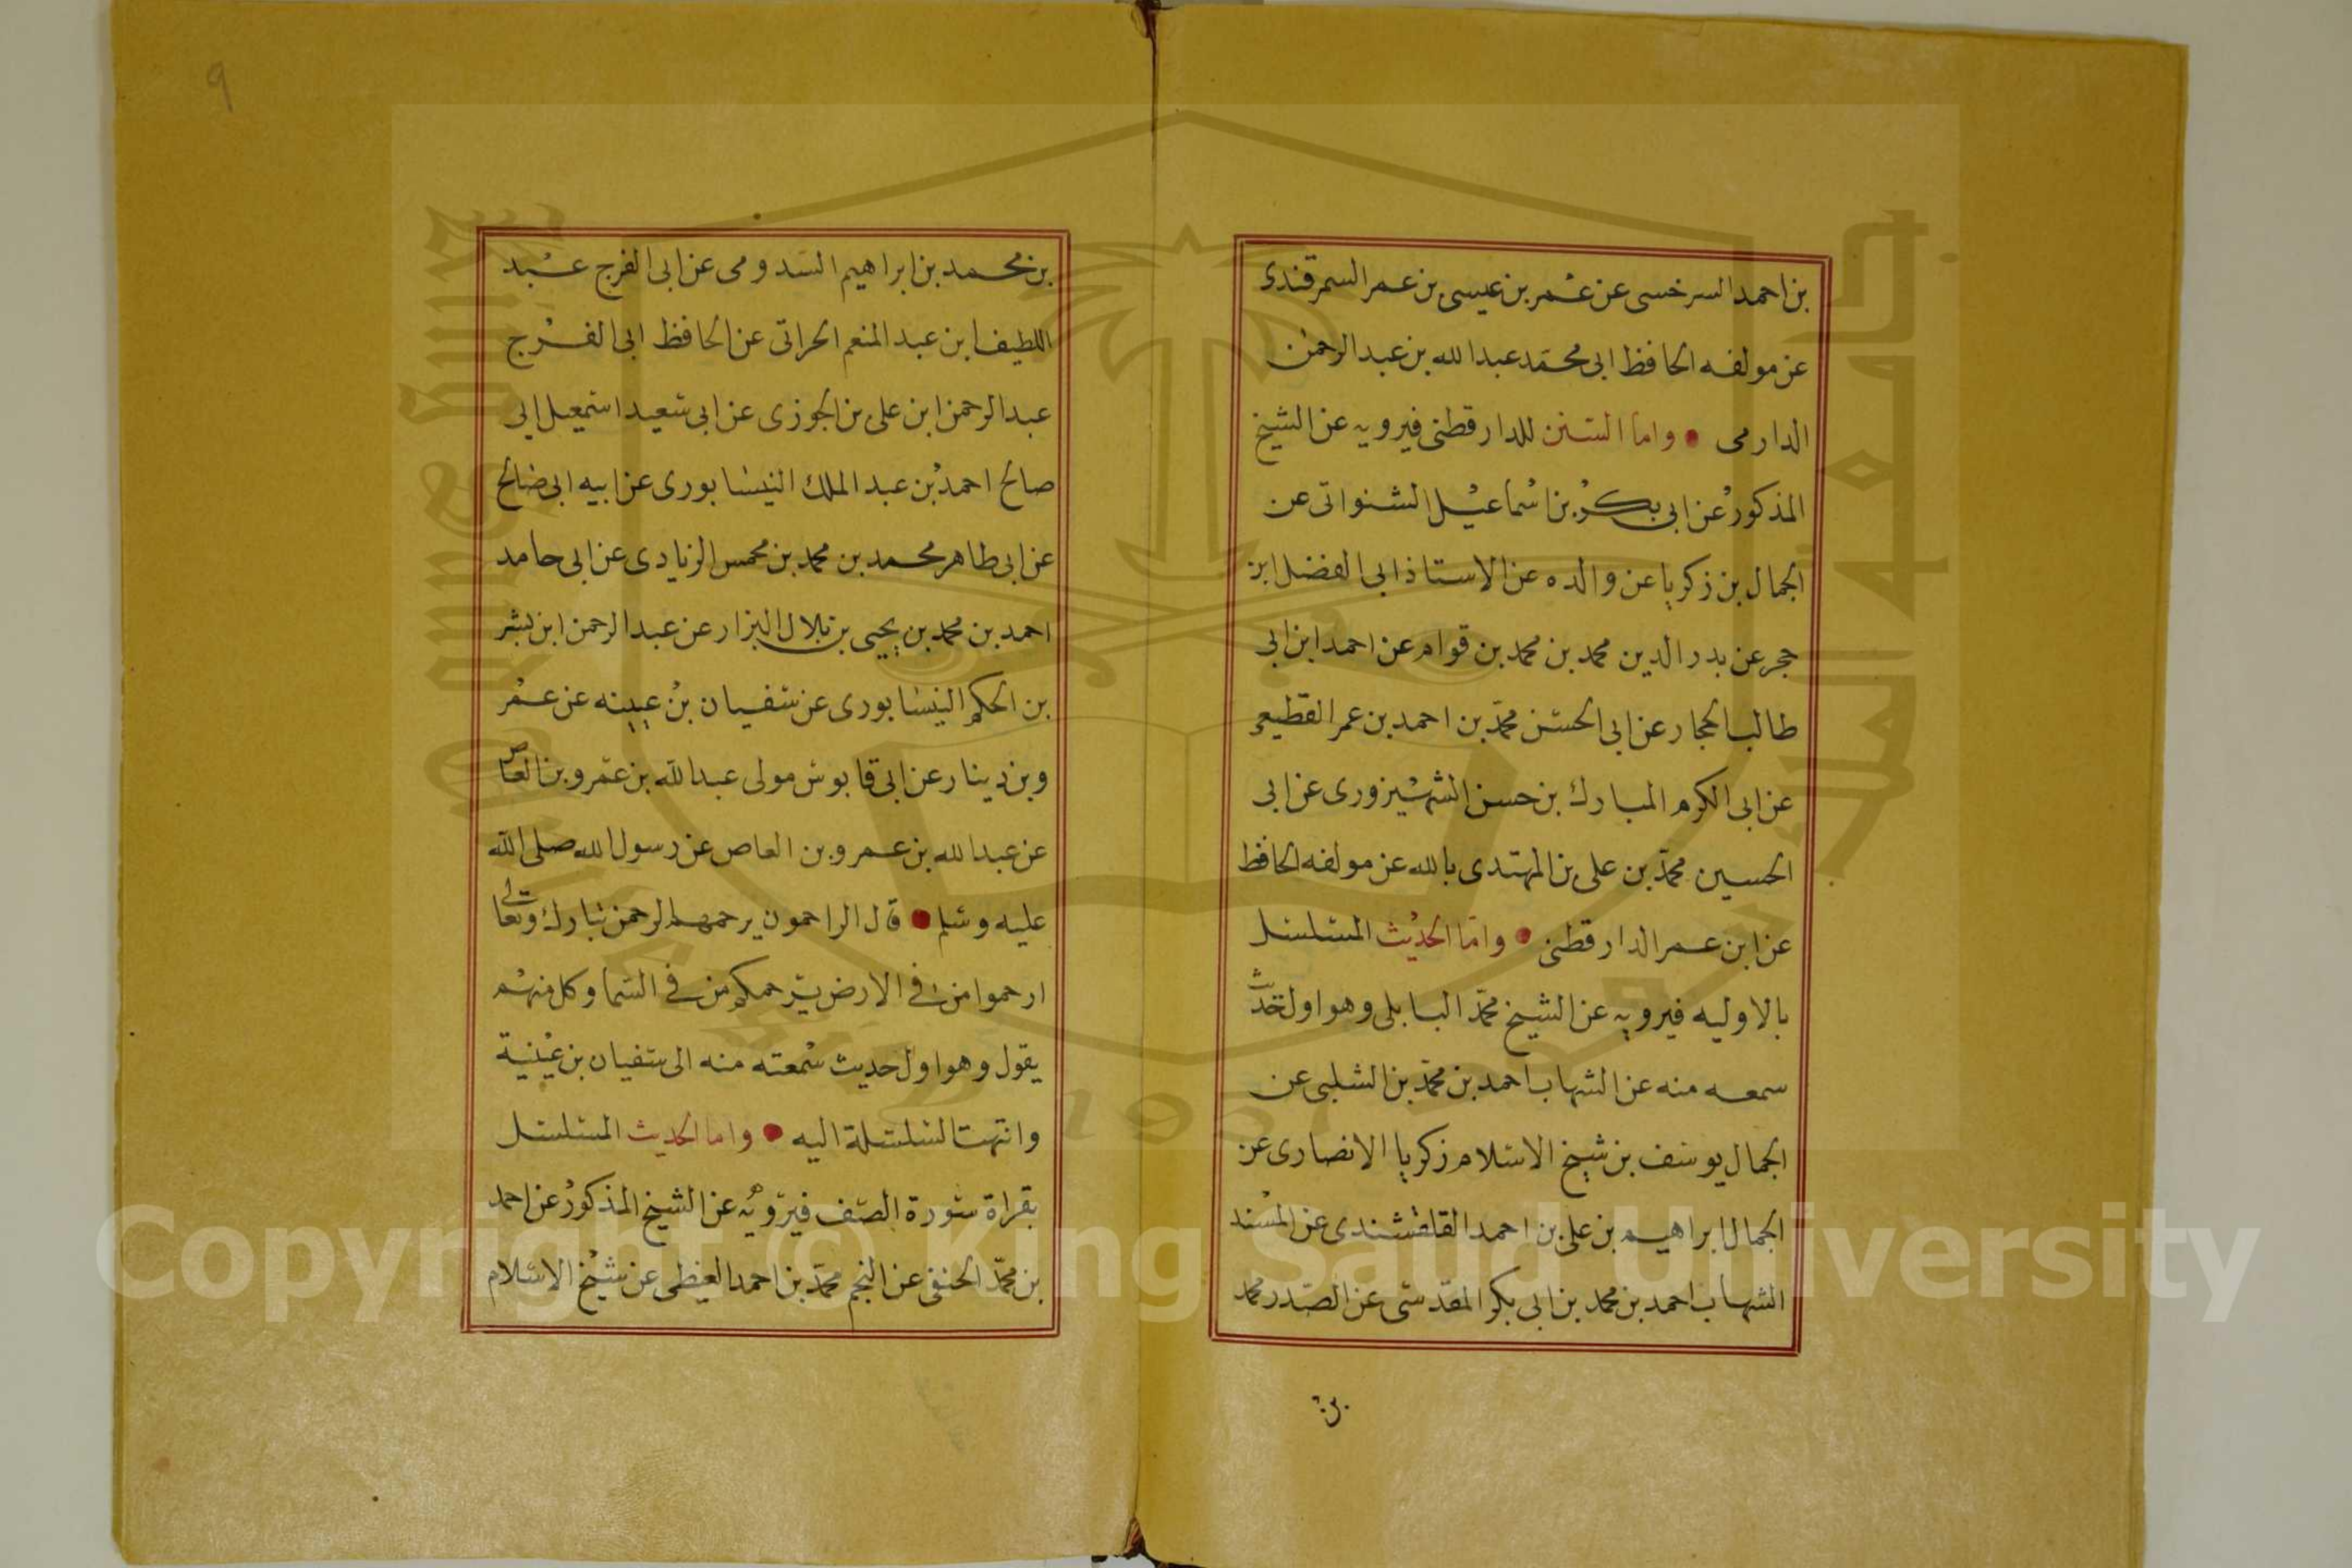 بن احمد السرخسى عن عمر بن عيسى بن عمر السمرقندى
عن مولفه الحافظ ابى محمد عبدالله بن عبدالرحمن
الدارمى • واما السنن للدارقطنى فيرويه عن الشيخ
المذكور عن ابى بكر بن اسماعيل الشنوانى عن
الجمال بن زكريا عن والده عن الاستاذ ابى الفضل ابن
حجر عن بدر الدين محمد بن محمد بن قوام عن احمد ابن ابى
طالب الحجار عن ابى الحسن محمد بن احمد بن عمر القطيعى
عن ابى الكرم المبارك بن حسن الشهيزورى عن ابى
الحسين محمد بن على بن المهتدى بالله عن مولفه الحافظ
عن ابن عمر الدارقطنى • واما الحديث المسلسل
بالاوليه فيرويه عن الشيخ محمد البابلى وهو اول حديث
سمعه منه عن الشهاب احمد بن محمد بن الشلبى عن
الجمال يوسف بن شيخ الاسلام زكريا الانصارى عن
الجمال ابراهيم بن على بن احمد القلقشندى عن المسند
الشهاب احمد بن محمد بن ابى بكر المقدسى عن الصدر محمد
بن
9
بن محمد بن ابراهيم السدومى عن ابى الفرج عبد
اللطيف ابن عبد المنعم الحرانى عن الحافظ ابى الفرج
عبد الرحمن ابن على بن الجوزى عن ابى سعيد اسمعيل ابى
صالح احمد بن عبد الملك النيسابورى عن ابيه ابى صالح
عن ابى طاهر محمد بن محمد بن محمس الزيادى عن ابى حامد
احمد بن محمد بن يحيى بن بلال البزار عن عبد الرحمن ابن بشر
بن الحكم النيسابورى عن سفيان بن عيينه عن عمر
وبن دينار عن ابى قابوس مولى عبد الله بن عمرو بن العاص
عن عبدالله بن عمرو بن العاص عن رسول الله صلى الله
عليه وسلم • قال الراحمون يرحمهم الرحمن تبارك وتعالى
ارحموا من فى الارض يرحمكم من فى السما وكل منهم
يقول وهو اول حديث سمعته منه الى سفيان بن عيينة
وانتهت السلسلة اليه • واما الحديث المسلسل
بقراة سورة الصف فيرويه عن الشيخ المذكور عن احمد
بن محمد الحنفى عن النجم محمد بن احمد الغيطى عن شيخ الاسلام
Copyright © King Saud University
1957